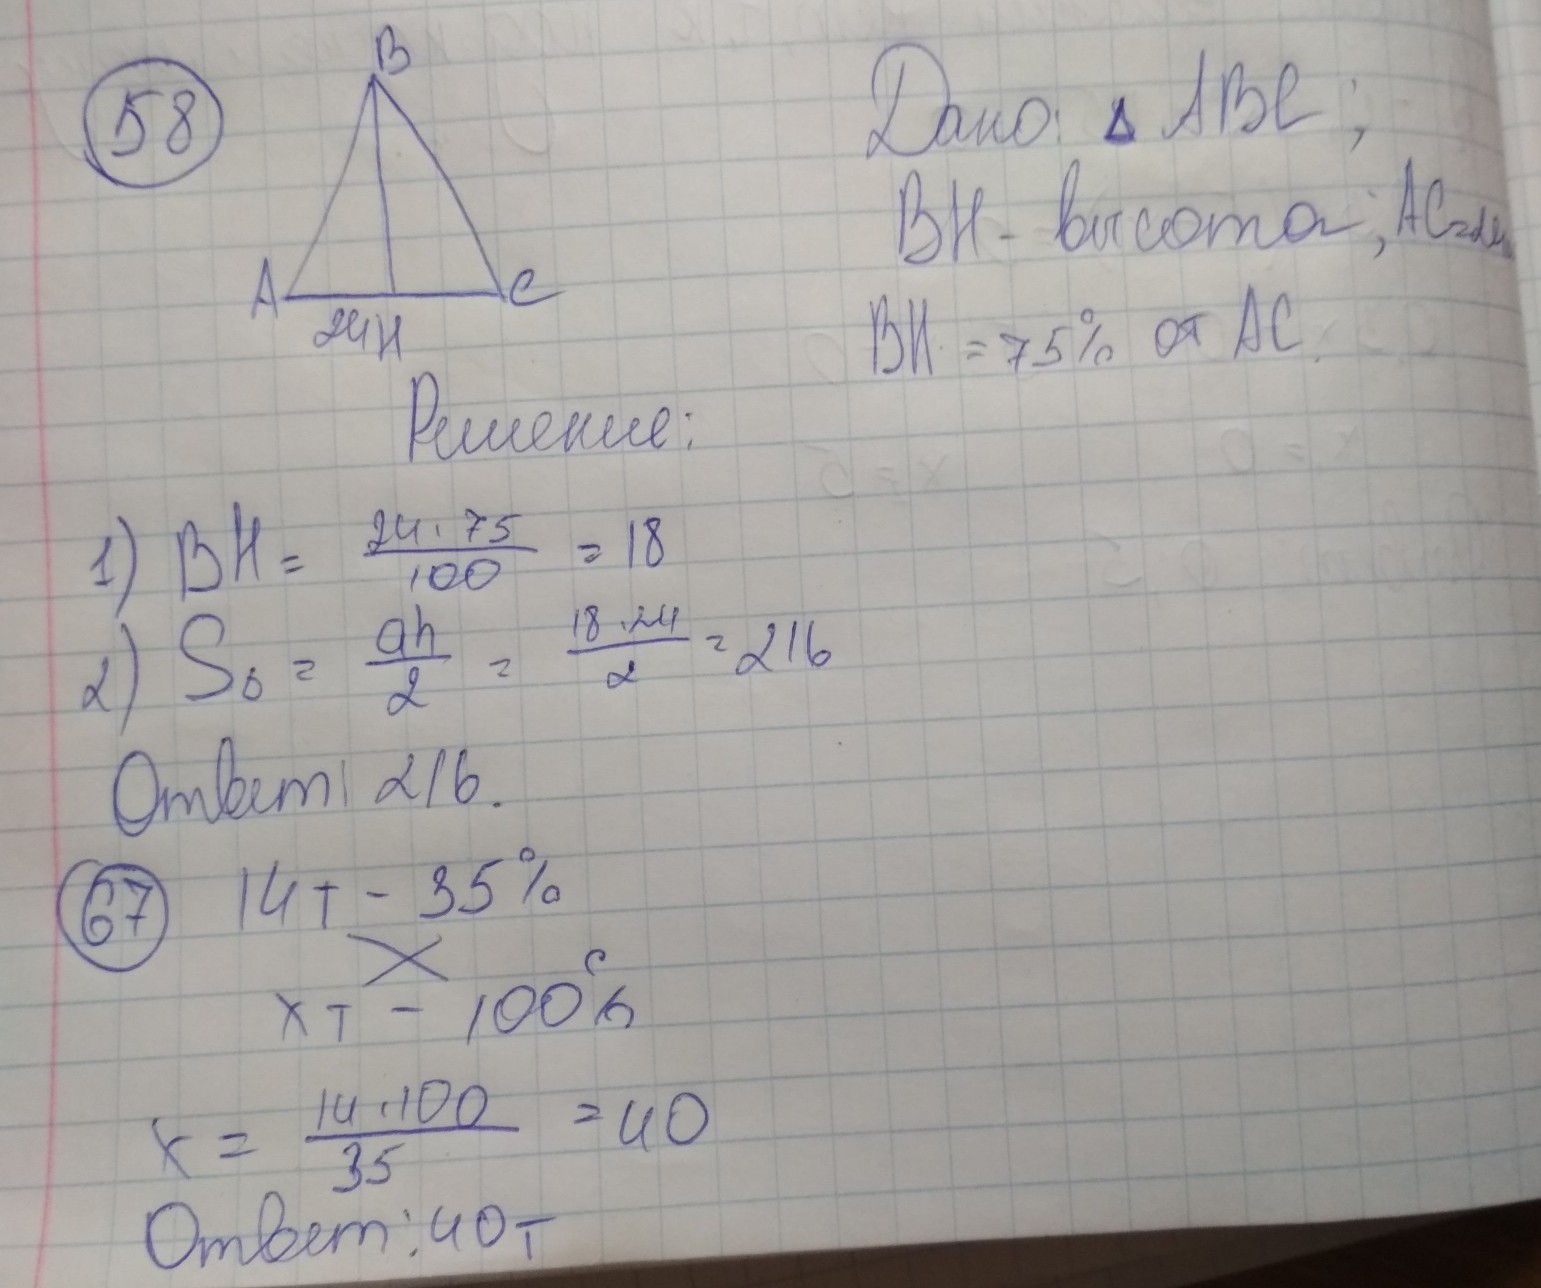 58
B
A
C
24 H
Дано: Δ ABC;
BH - высота; AC=24
BH = 75% от AC.
Решение:
1) BH = 24·75/100 = 18
2) SΔ = ah/2 = 18·24/2 = 216
Ответ: 216.
67
14т - 35%
xт - 100%
x = 14·100/35 = 40
Ответ: 40т